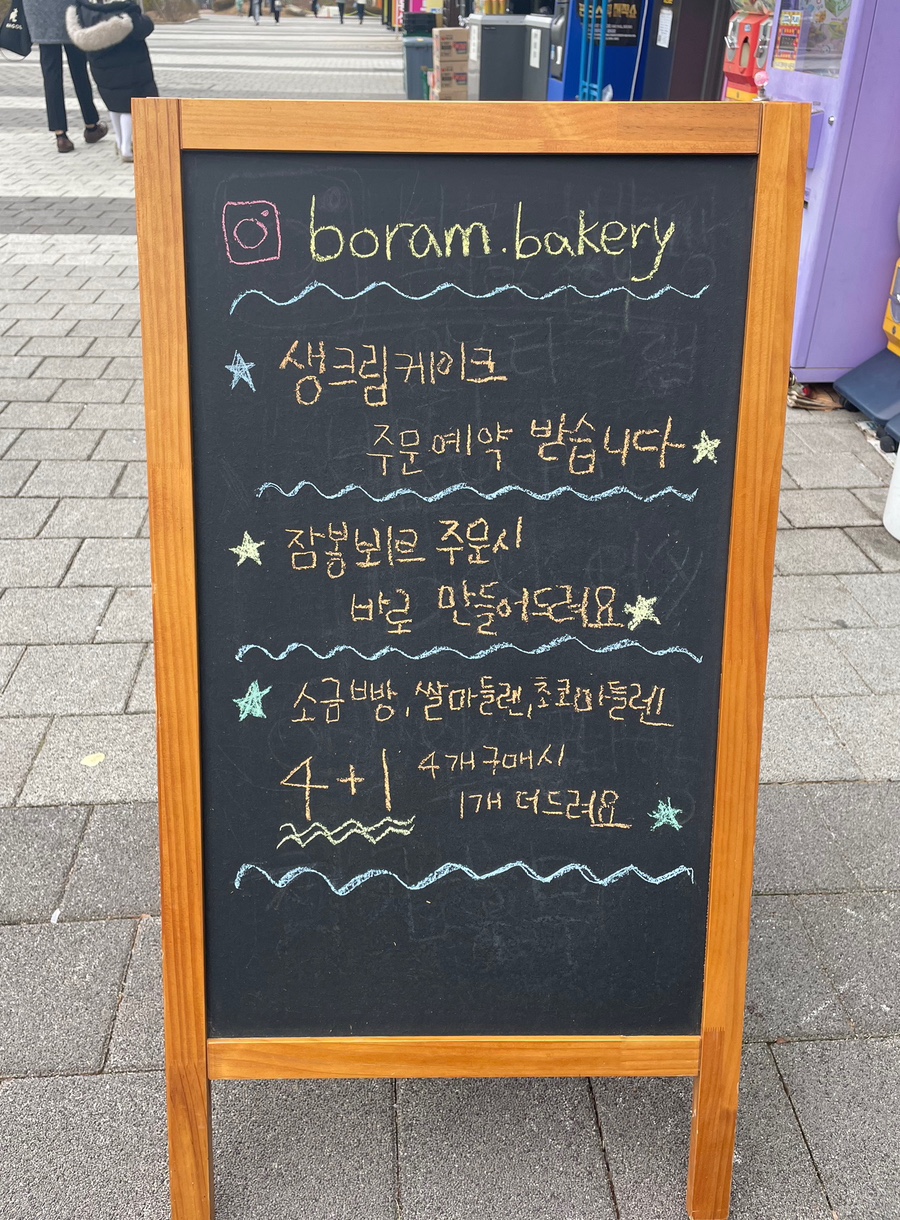 boram.bakery
생크림케이크
주문예약 받습니다
잠봉뵈르 주문시
바로 만들어드려요
소금빵, 쌀마들렌, 초코마들렌
4+1 4개구매시
1개 더드려요